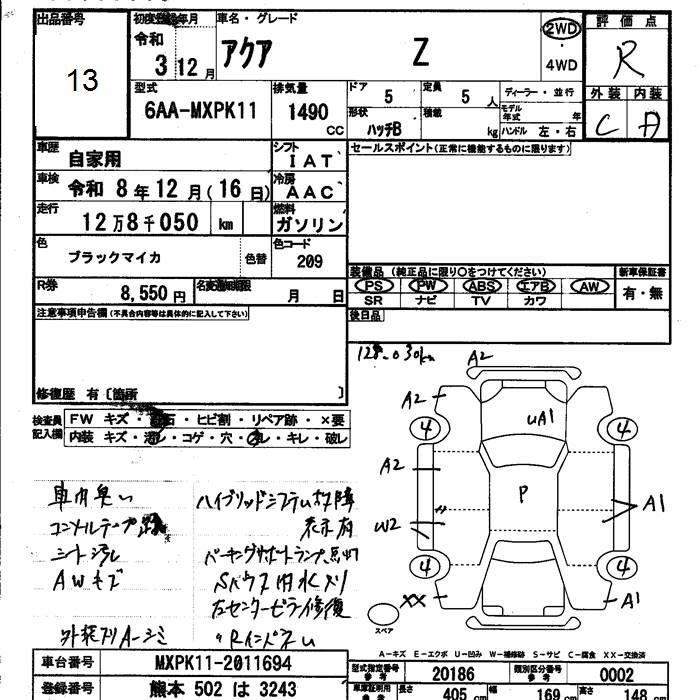 出品番号
13
初度登録年月
令和
3年 12月
車名・グレード
アクア Z
2WD
・
4WD
評価点
R
外装 内装
C A
型式
6AA-MXPK11
排気量
1490
CC
ドア
5
定員
5人
形状
ハッチB
積載
kg
ディーラー・並行
モデル年式 年
ハンドル 左・右
車歴
自家用
シフト
IAT
セールスポイント(正常に機能するものに限ります)
車検
令和 8年 12月(16日)
冷房
AAC
走行
12万8千050 km
燃料
ガソリン
色
ブラックマイカ
色替
色コード
209
R券
8,550円
名変期限
月 日
装備品 (純正品に限り○をつけてください)
新車保証書
PS PW ABS エアB AW
有・無
SR ナビ TV カワ
注意事項申告欄(不具合内容等は具体的に記入して下さい)
後日品
修復歴 有〔箇所 〕
128.030km
検査員記入欄
FW キズ・飛石・ヒビ割・リペア跡・×要
内装 キズ・汚レ・コゲ・穴・スレ・キレ・破レ
車内臭い
シート汚レ
AWキズ
外装フリA-シミ
ハイブリッドシステム故障
表示有
左センターピラー修復
〃Rインパネル
A2
A2
UA1
4
4
A2
P
A1
W2
〃
4
4
××
A1
スペア
A-キズ E-エクボ U-凹み W-補修跡 S-サビ C-腐食 XX-交換済
車台番号
MXPK11-2011694
登録番号
熊本 502 は 3243
型式指定番号 参考
20186
類別区分番号 参考
0002
車庫証明用 参考
長さ 405 cm
幅 169 cm
高さ 148